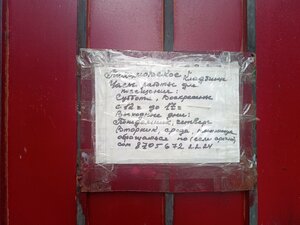 кладбище
Часы работы для
посещения:
Суббота, Воскресенье
с 12 ч до 17 ч
Выходные дни:
Понедельник, четверг
Вторник, среда,
обращаться по
сот 8705 672 2224